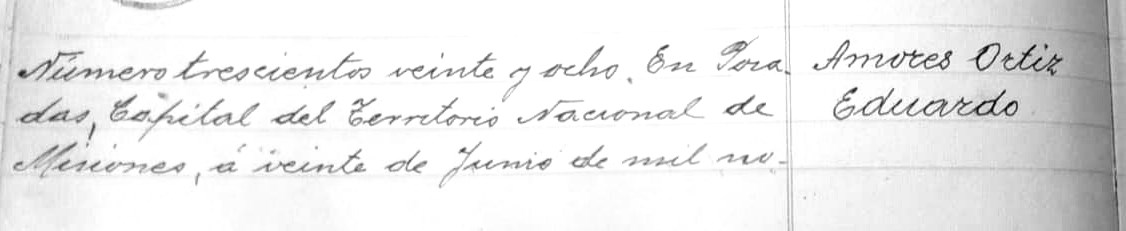 Número trescientos veinte y ocho. En Posa-
das, Capital del Territorio Nacional de
Misiones, á veinte de Junio de mil no-
Amores Ortiz
Eduardo